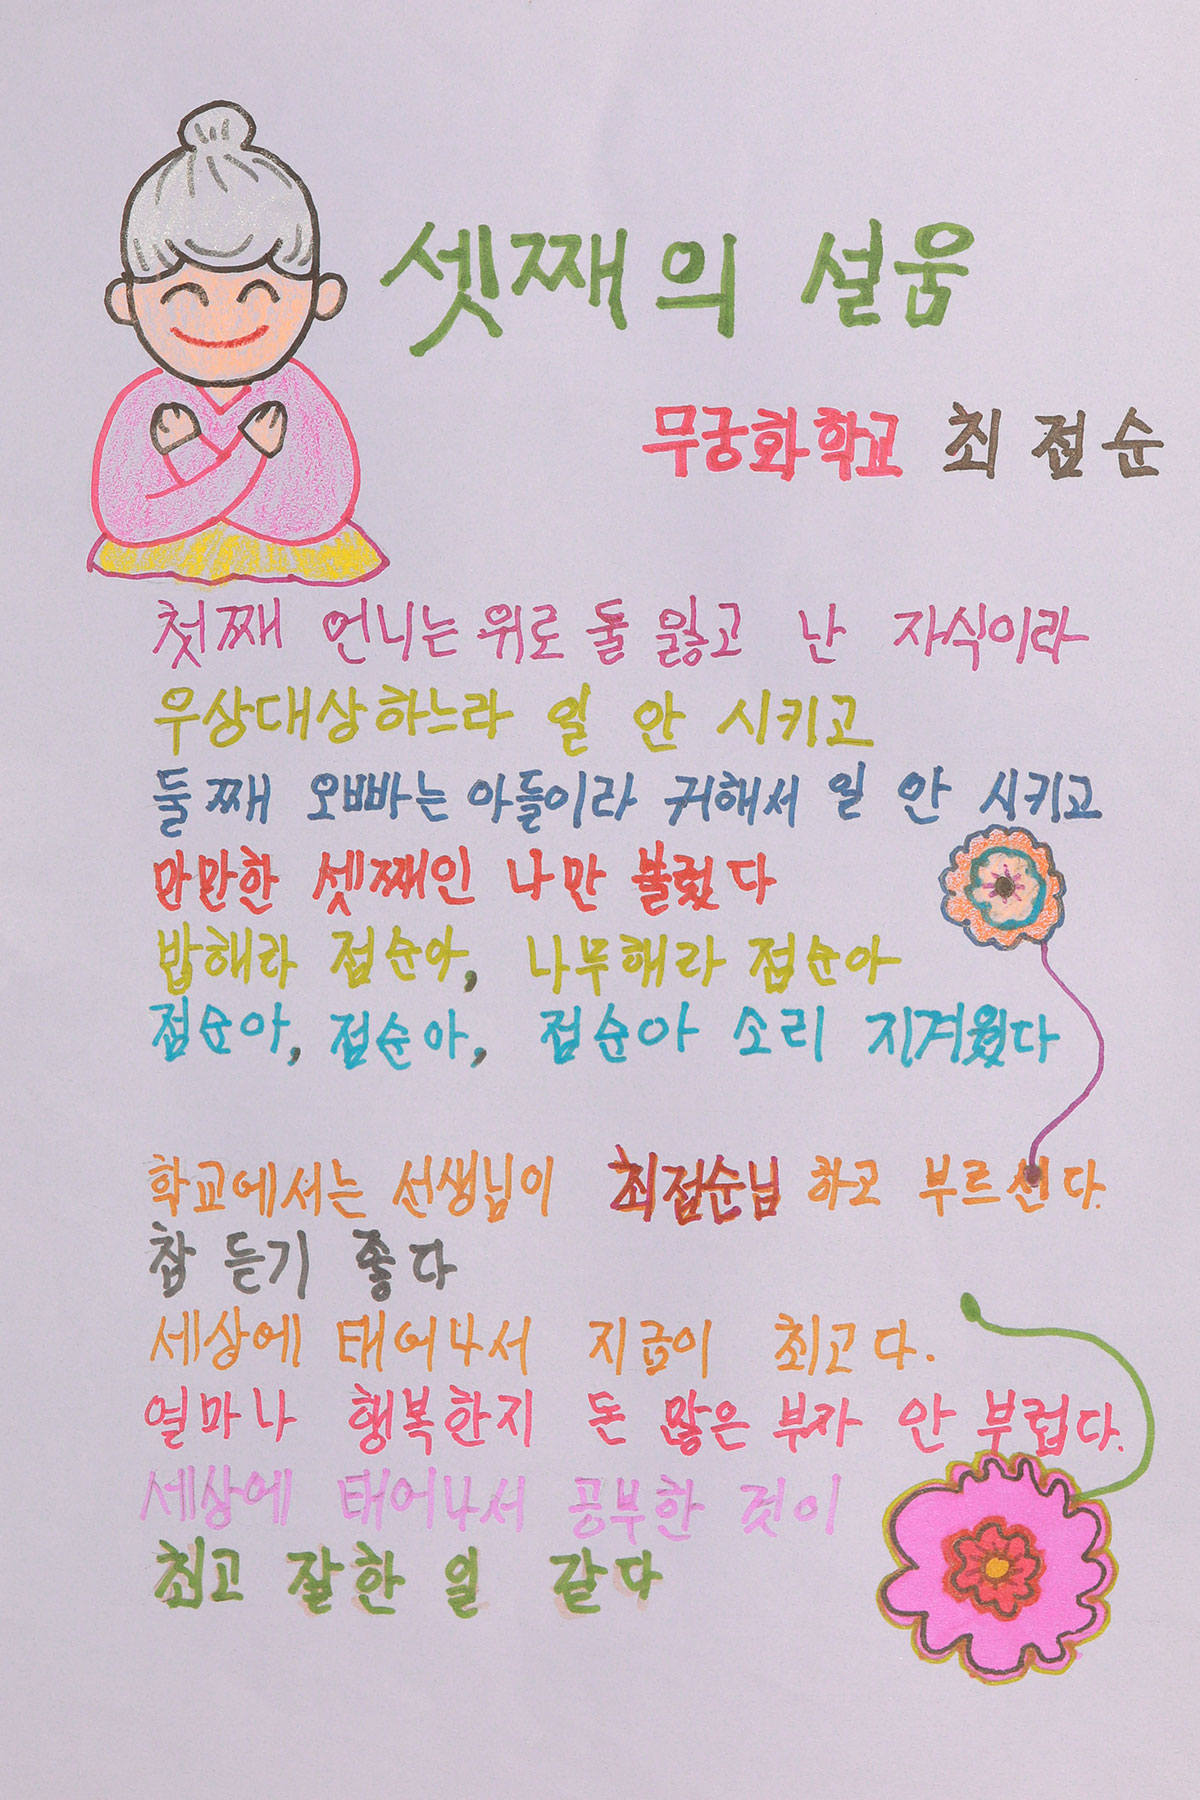 셋째의 설움
무궁화학교 최점순
첫째 언니는 위로 둘 잃고 난 자식이라
우상대상하느라 일 안 시키고
둘째 오빠는 아들이라 귀해서 일 안 시키고
만만한 셋째인 나만 불렀다
밥해라 점순아, 나무해라 점순아
점순아, 점순아, 점순아 소리 지겨웠다
학교에서는 선생님이 최점순님 하고 부르신다.
참 듣기 좋다
세상에 태어나서 지금이 최고다.
얼마나 행복한지 돈 많은 부자 안 부럽다.
세상에 태어나서 공부한 것이
최고 잘한 일 같다